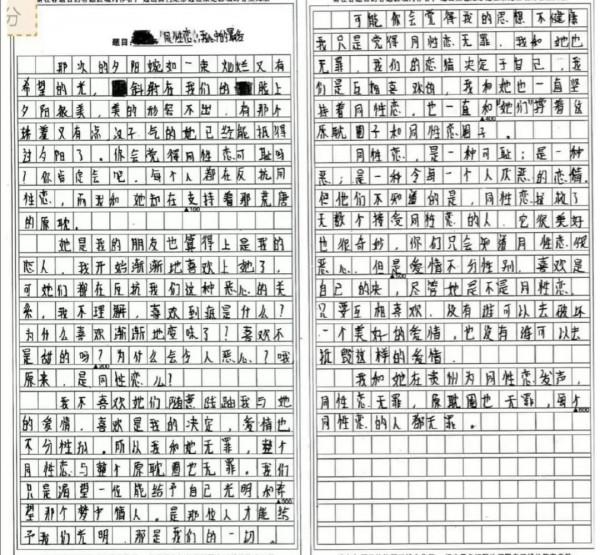 分
题目
同性恋
那次的夕阳婉如一束灿烂又有
希望的光,斜射在我们的脸上
夕阳很美,美的形容不出,有那个
又有点汉子气的她已经能抵得
过夕阳了。你会觉得同性恋可耻吗
?你肯定会吧,每个人都在反抗同
性恋,而我和她却在支持着那荒唐
的原耽。
▲100
她是我的朋友也算得上是我的
恋人,我开始渐渐地喜欢上她了,
可她们都在反抗我们这种恶心的关
系,我不理解,喜欢到底是什么?
为什么喜欢渐渐地变味了?喜欢不
是甜的吗?为什么会令人恶心?哦
▲200
原来,是同性恋么!
我不喜欢她们随意诋毁我与她
的爱情,喜欢是我的决定,爱情也
不分性别。所以我和她无罪,整个
同性恋与整个原耽圈也无罪。我们
只是渴望一位能给予自己光明和希
▲300
望那个梦中情人。是那位人才能给
予我们光明,那是我们的一切。
可能你会觉得我的思想不健康
我只是觉得同性恋无罪,我和她也
无罪,我们的恋情决定于自己,我
们是互相喜欢的,我和她也一直坚
持着同性恋,也一直和“她们”骂着这
▲400
原耽圈子和同性恋圈子。
同性恋,是一种可耻;是一种
恶;是一种令每一个人厌恶的恋情
但他们不知道的是,同性恋拯救了
无数个接受同性恋的人,它很美好
也很奇妙,你们只会知道同性恋很
恶心,但是爱情不分性别,喜欢是
▲500
自己的决,尽管她是不是同性恋,
只要互相喜欢,没有谁可以去破坏
一个美好的爱情,也没有谁可以去
诋毁这样的爱情.
我和她在贵州为同性恋发声,
同性恋无罪,原耽圈也无罪,每个
▲600
同性恋的人都无罪。